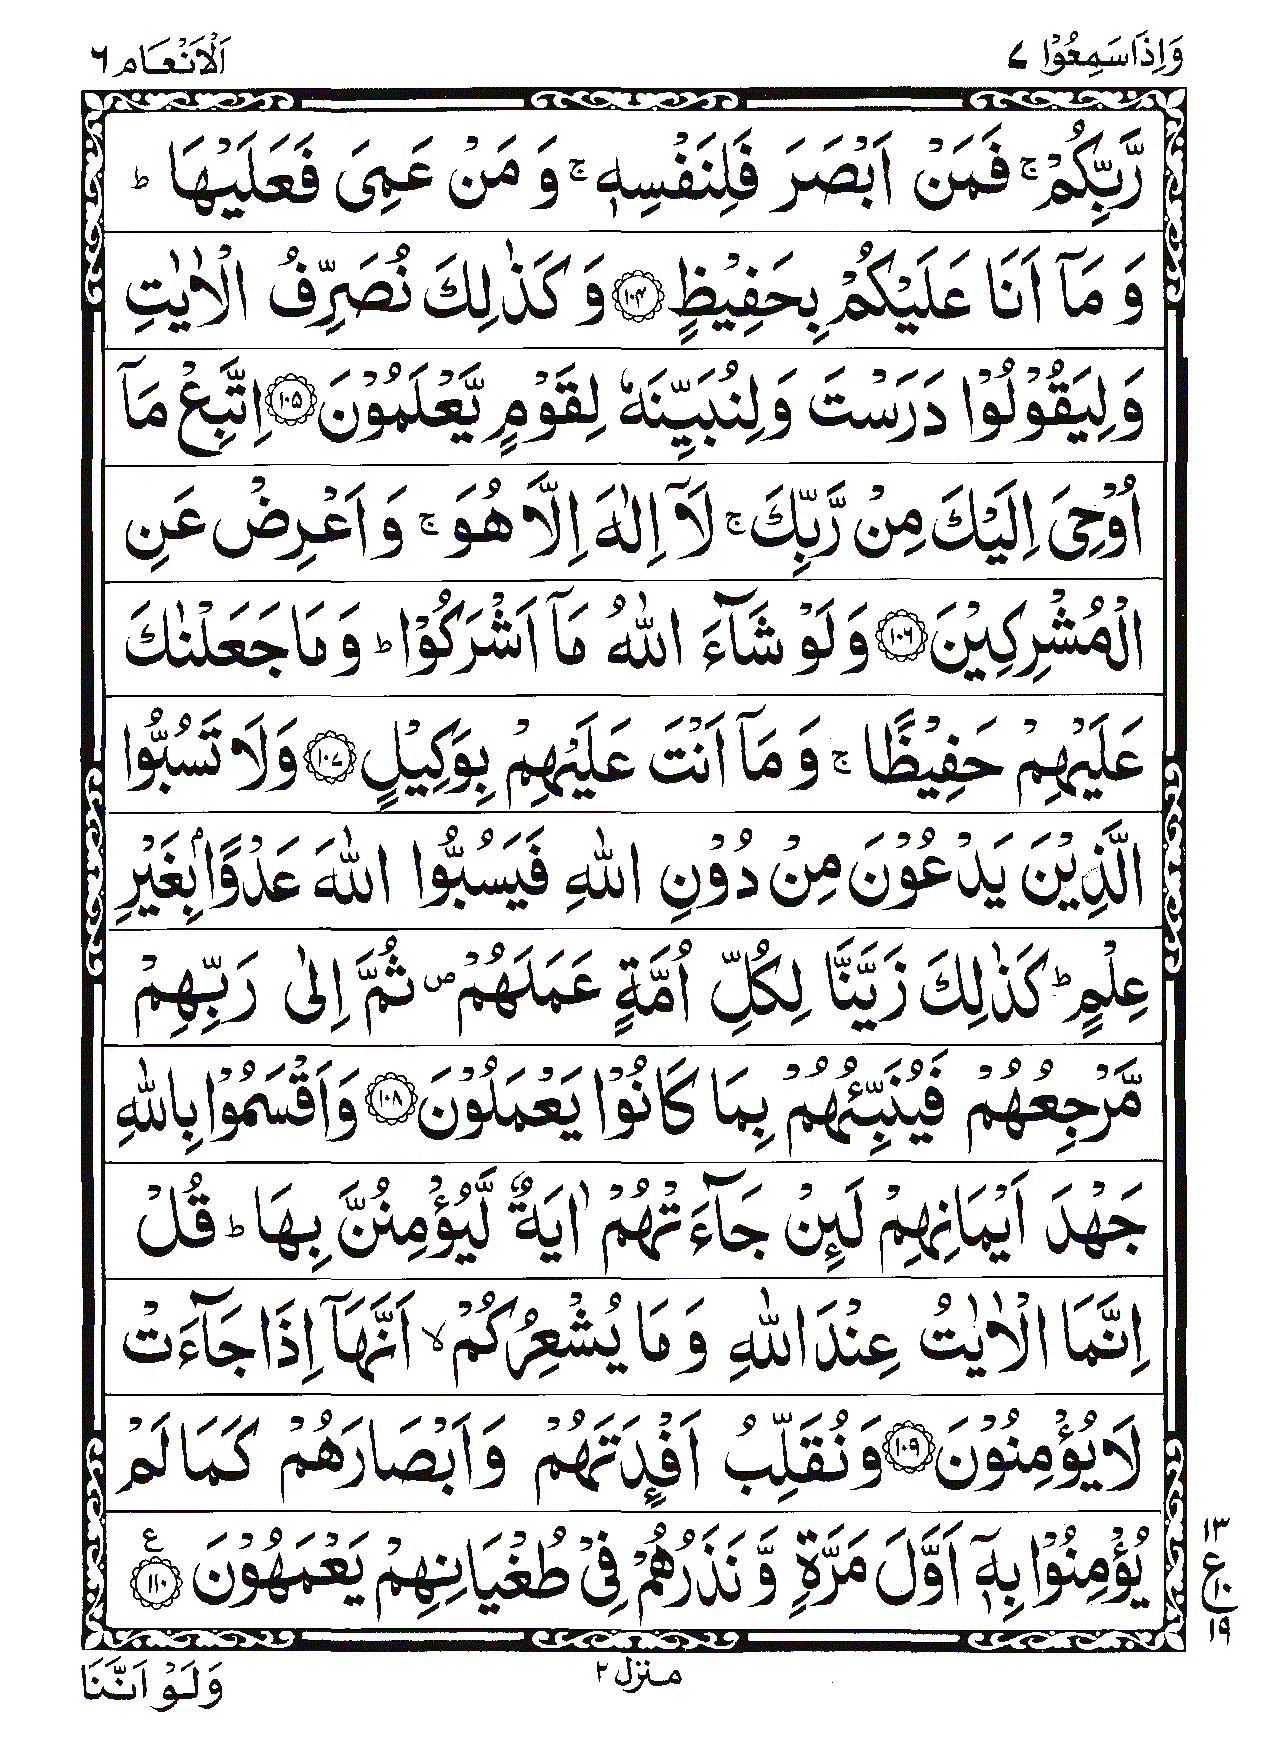 وَاِذَا سَمِعُوْا ٧
اَلْاَنْعَام ٦
رَّبِّكُمْ ۚ فَمَنْ اَبْصَرَ فَلِنَفْسِهٖ ۚ وَ مَنْ عَمِیَ فَعَلَیْهَا ؕ
وَ مَاۤ اَنَا عَلَیْكُمْ بِحَفِیْظٍ ﴿۱۰۴﴾ وَ كَذٰلِكَ نُصَرِّفُ الْاٰیٰتِ
وَ لِیَقُوْلُوْا دَرَسْتَ وَ لِنُبَیِّنَهٗ لِقَوْمٍ یَّعْلَمُوْنَ ﴿۱۰۵﴾ اِتَّبِعْ مَاۤ
اُوْحِیَ اِلَیْكَ مِنْ رَّبِّكَ ۚ لَاۤ اِلٰهَ اِلَّا هُوَ ۚ وَ اَعْرِضْ عَنِ
الْمُشْرِكِیْنَ ﴿۱۰۶﴾ وَ لَوْ شَآءَ اللّٰهُ مَاۤ اَشْرَكُوْا ؕ وَ مَا جَعَلْنٰكَ
عَلَیْهِمْ حَفِیْظًا ۚ وَ مَاۤ اَنْتَ عَلَیْهِمْ بِوَكِیْلٍ ﴿۱۰۷﴾ وَ لَا تَسُبُّوا
الَّذِیْنَ یَدْعُوْنَ مِنْ دُوْنِ اللّٰهِ فَیَسُبُّوا اللّٰهَ عَدْوًۢا بِغَیْرِ
عِلْمٍ ؕ كَذٰلِكَ زَیَّنَّا لِكُلِّ اُمَّةٍ عَمَلَهُمْ ۪ ثُمَّ اِلٰی رَبِّهِمْ
مَّرْجِعُهُمْ فَیُنَبِّئُهُمْ بِمَا كَانُوْا یَعْمَلُوْنَ ﴿۱۰۸﴾ وَ اَقْسَمُوْا بِاللّٰهِ
جَهْدَ اَیْمَانِهِمْ لَىِٕنْ جَآءَتْهُمْ اٰیَةٌ لَّیُؤْمِنُنَّ بِهَا ؕ قُلْ
اِنَّمَا الْاٰیٰتُ عِنْدَ اللّٰهِ وَ مَا یُشْعِرُكُمْ ۙ اَنَّهَاۤ اِذَا جَآءَتْ
لَا یُؤْمِنُوْنَ ﴿۱۰۹﴾ وَ نُقَلِّبُ اَفْـِٕدَتَهُمْ وَ اَبْصَارَهُمْ كَمَا لَمْ
یُؤْمِنُوْا بِهٖۤ اَوَّلَ مَرَّةٍ وَّ نَذَرُهُمْ فِیْ طُغْیَانِهِمْ یَعْمَهُوْنَ ﴿۱۱۰﴾ ع
١٣
ع
١٠
١٩
منزل ٢
وَلَوْ اَنَّنَا